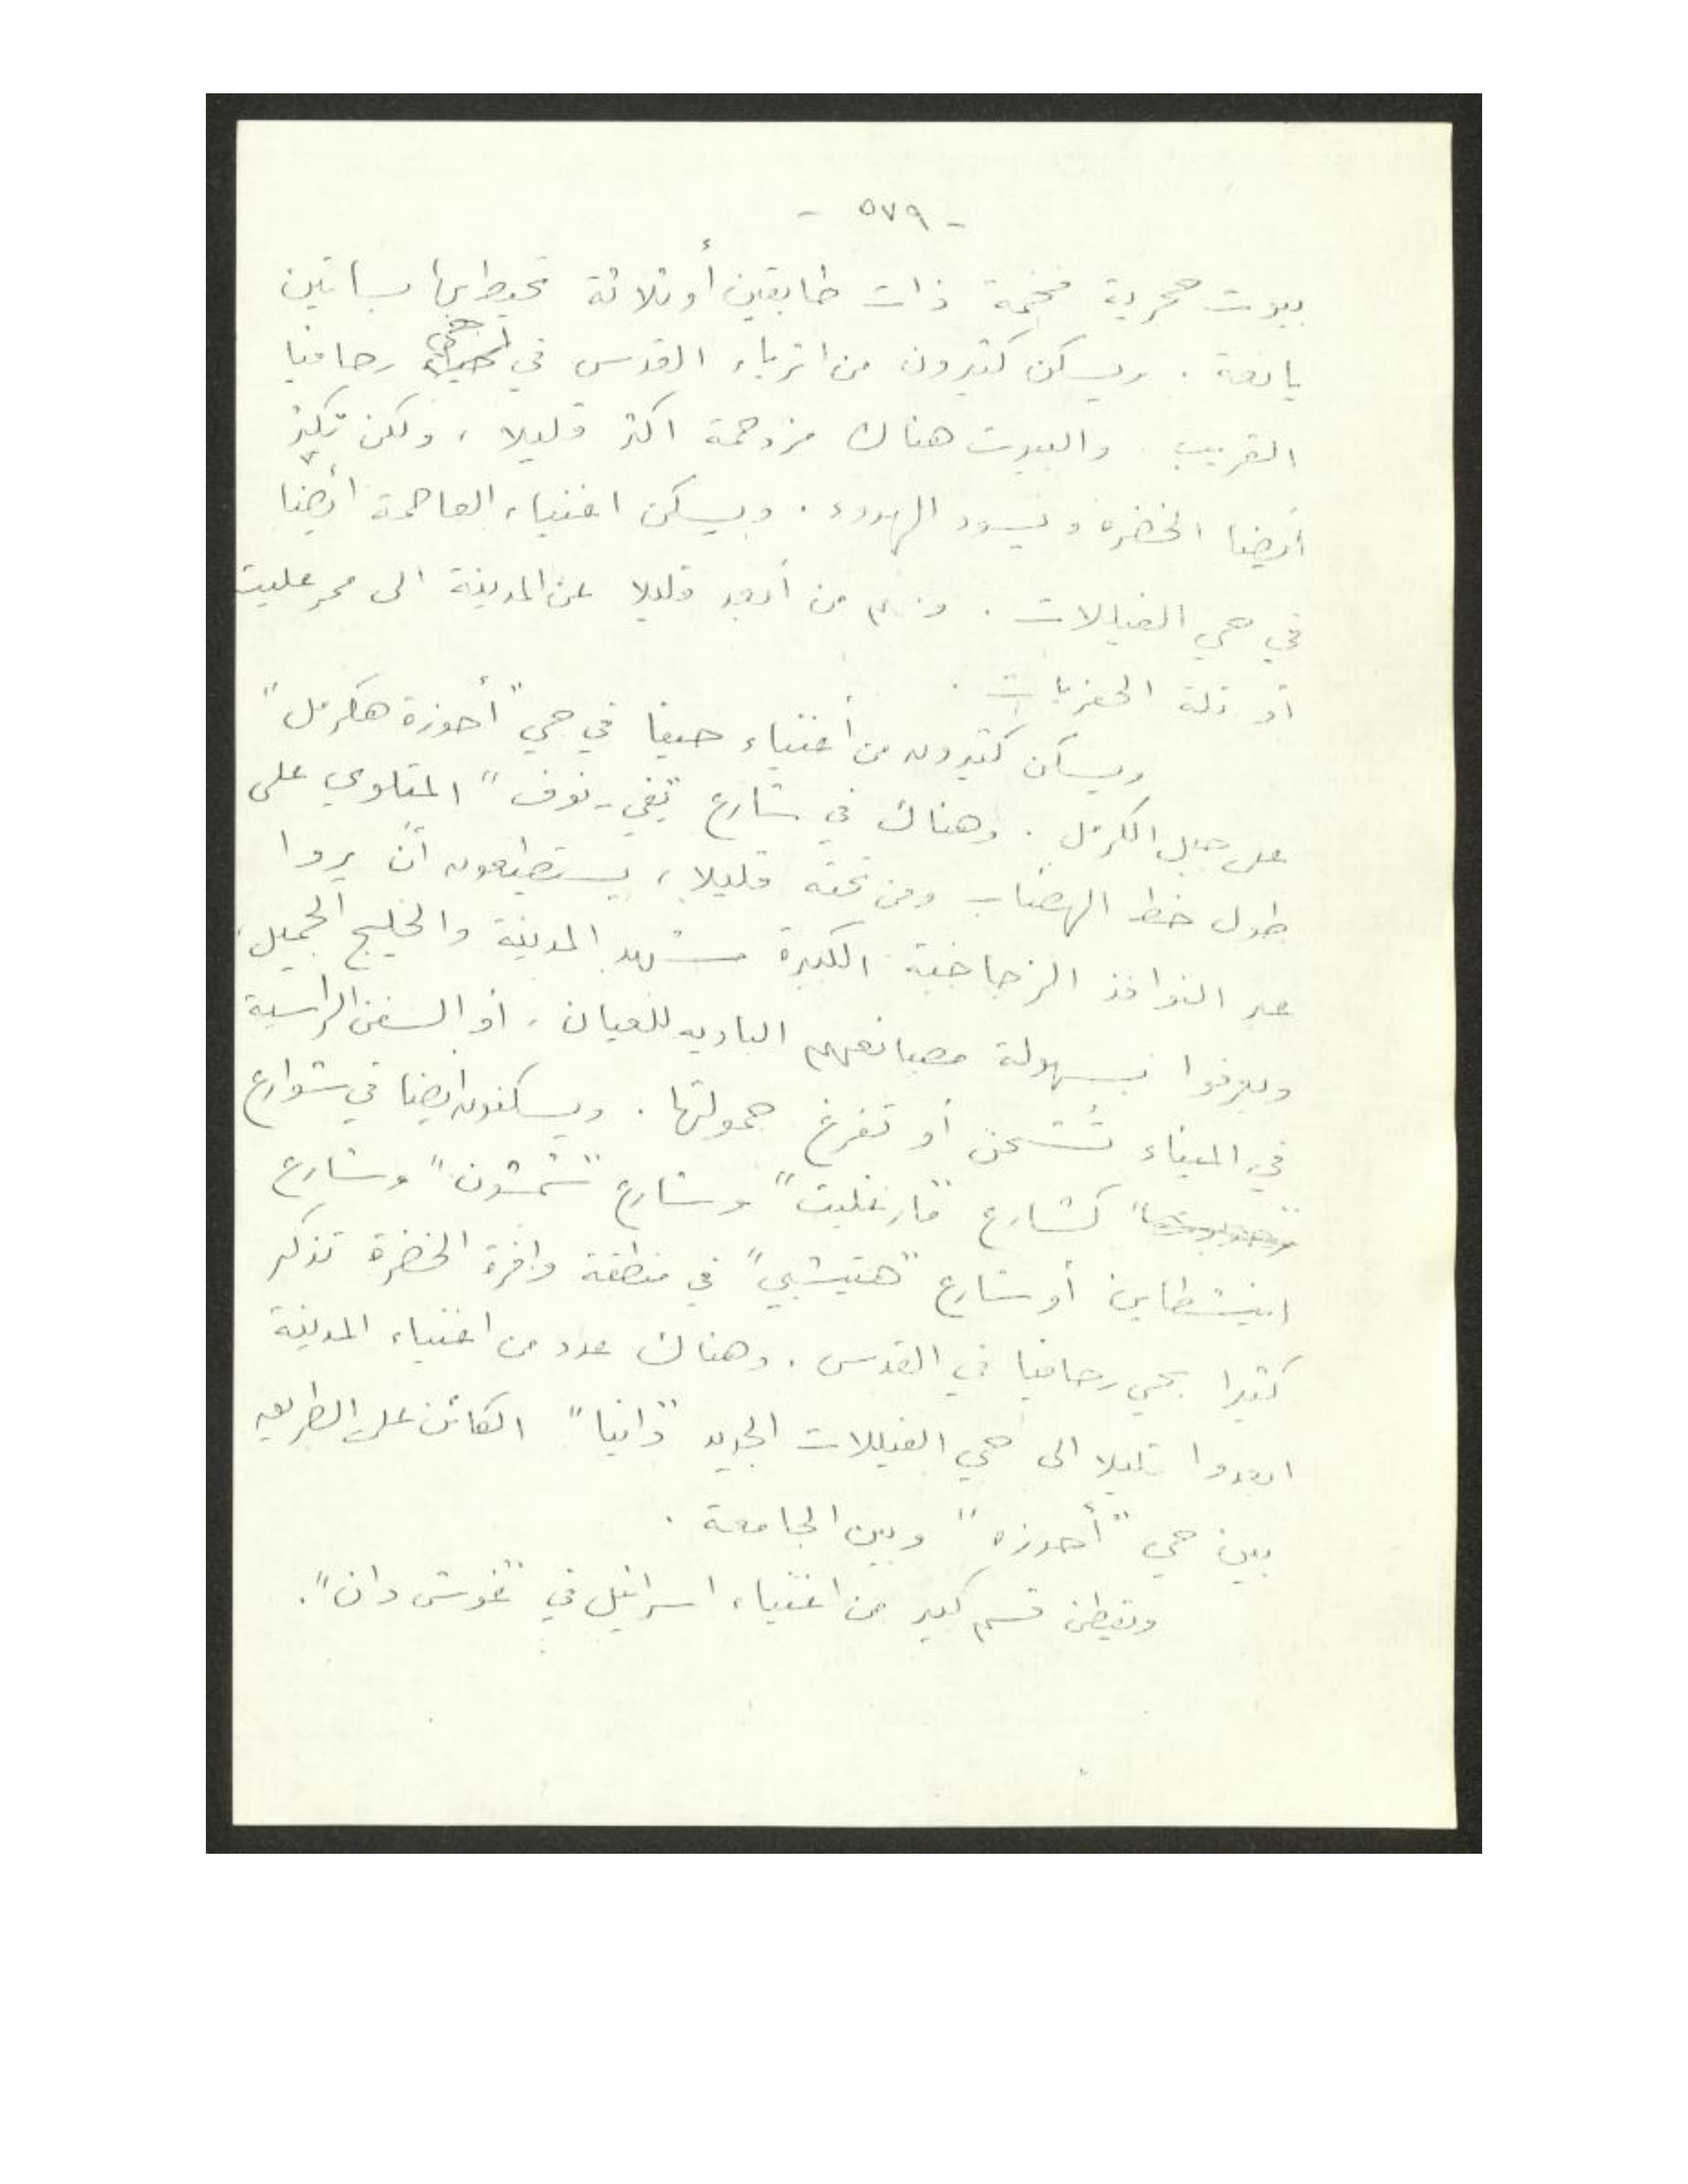 - ٥٧٩ -
بيوت حجرية فخمة ذات طابقين أو ثلاثة تحيط بها بساتين
يانعة . ويسكن كثيرون من اثرياء القدس في حي رحافيا
القريب . والبيوت هناك مزدحمة اكثر قليلا ، ولكن تكثر
أيضا الخضرة ويسود الهدوء . ويسكن اغنياء العاصمة أيضا
في حي الفيالات . ومنهم من أبعد قليلا عن المدينة الى
أو تلة
ويسكن كثيرون من أغنياء حيفا في حي "أحوزة هكرمل"
على جبل الكرمل . وهناك في شارع "يفي - نوف" المتلوي على
طول خط الهضاب ومن تحته قليلا ، يستطيعون أن يروا
عبر النوافذ الزجاجية الكبيرة مشهد المدينة والخليج الجميل ،
ويعرفوا بسهولة مصانعهم الباديه للعيان ، أو السفن الراسية
في الميناء تُشحن أو تفرغ حمولتها . ويسكنون أيضا في شوارع
كشارع "مارغليت" وشارع "شمشون" وشارع
اينشطاين أو شارع "هتيشبي" في منطقة وافرة الخضرة تذكر
كثيرا بحي رحافيا في القدس . وهناك عدد من اغنياء المدينة
ابعدوا قليلا الى حي الفيللات الجديد "دانيا" الكائن على الطريق
بين حي "أحوزه" وبين الجامعة .
ويقطن قسم كبير من اغنياء اسرائيل في "غوش دان".